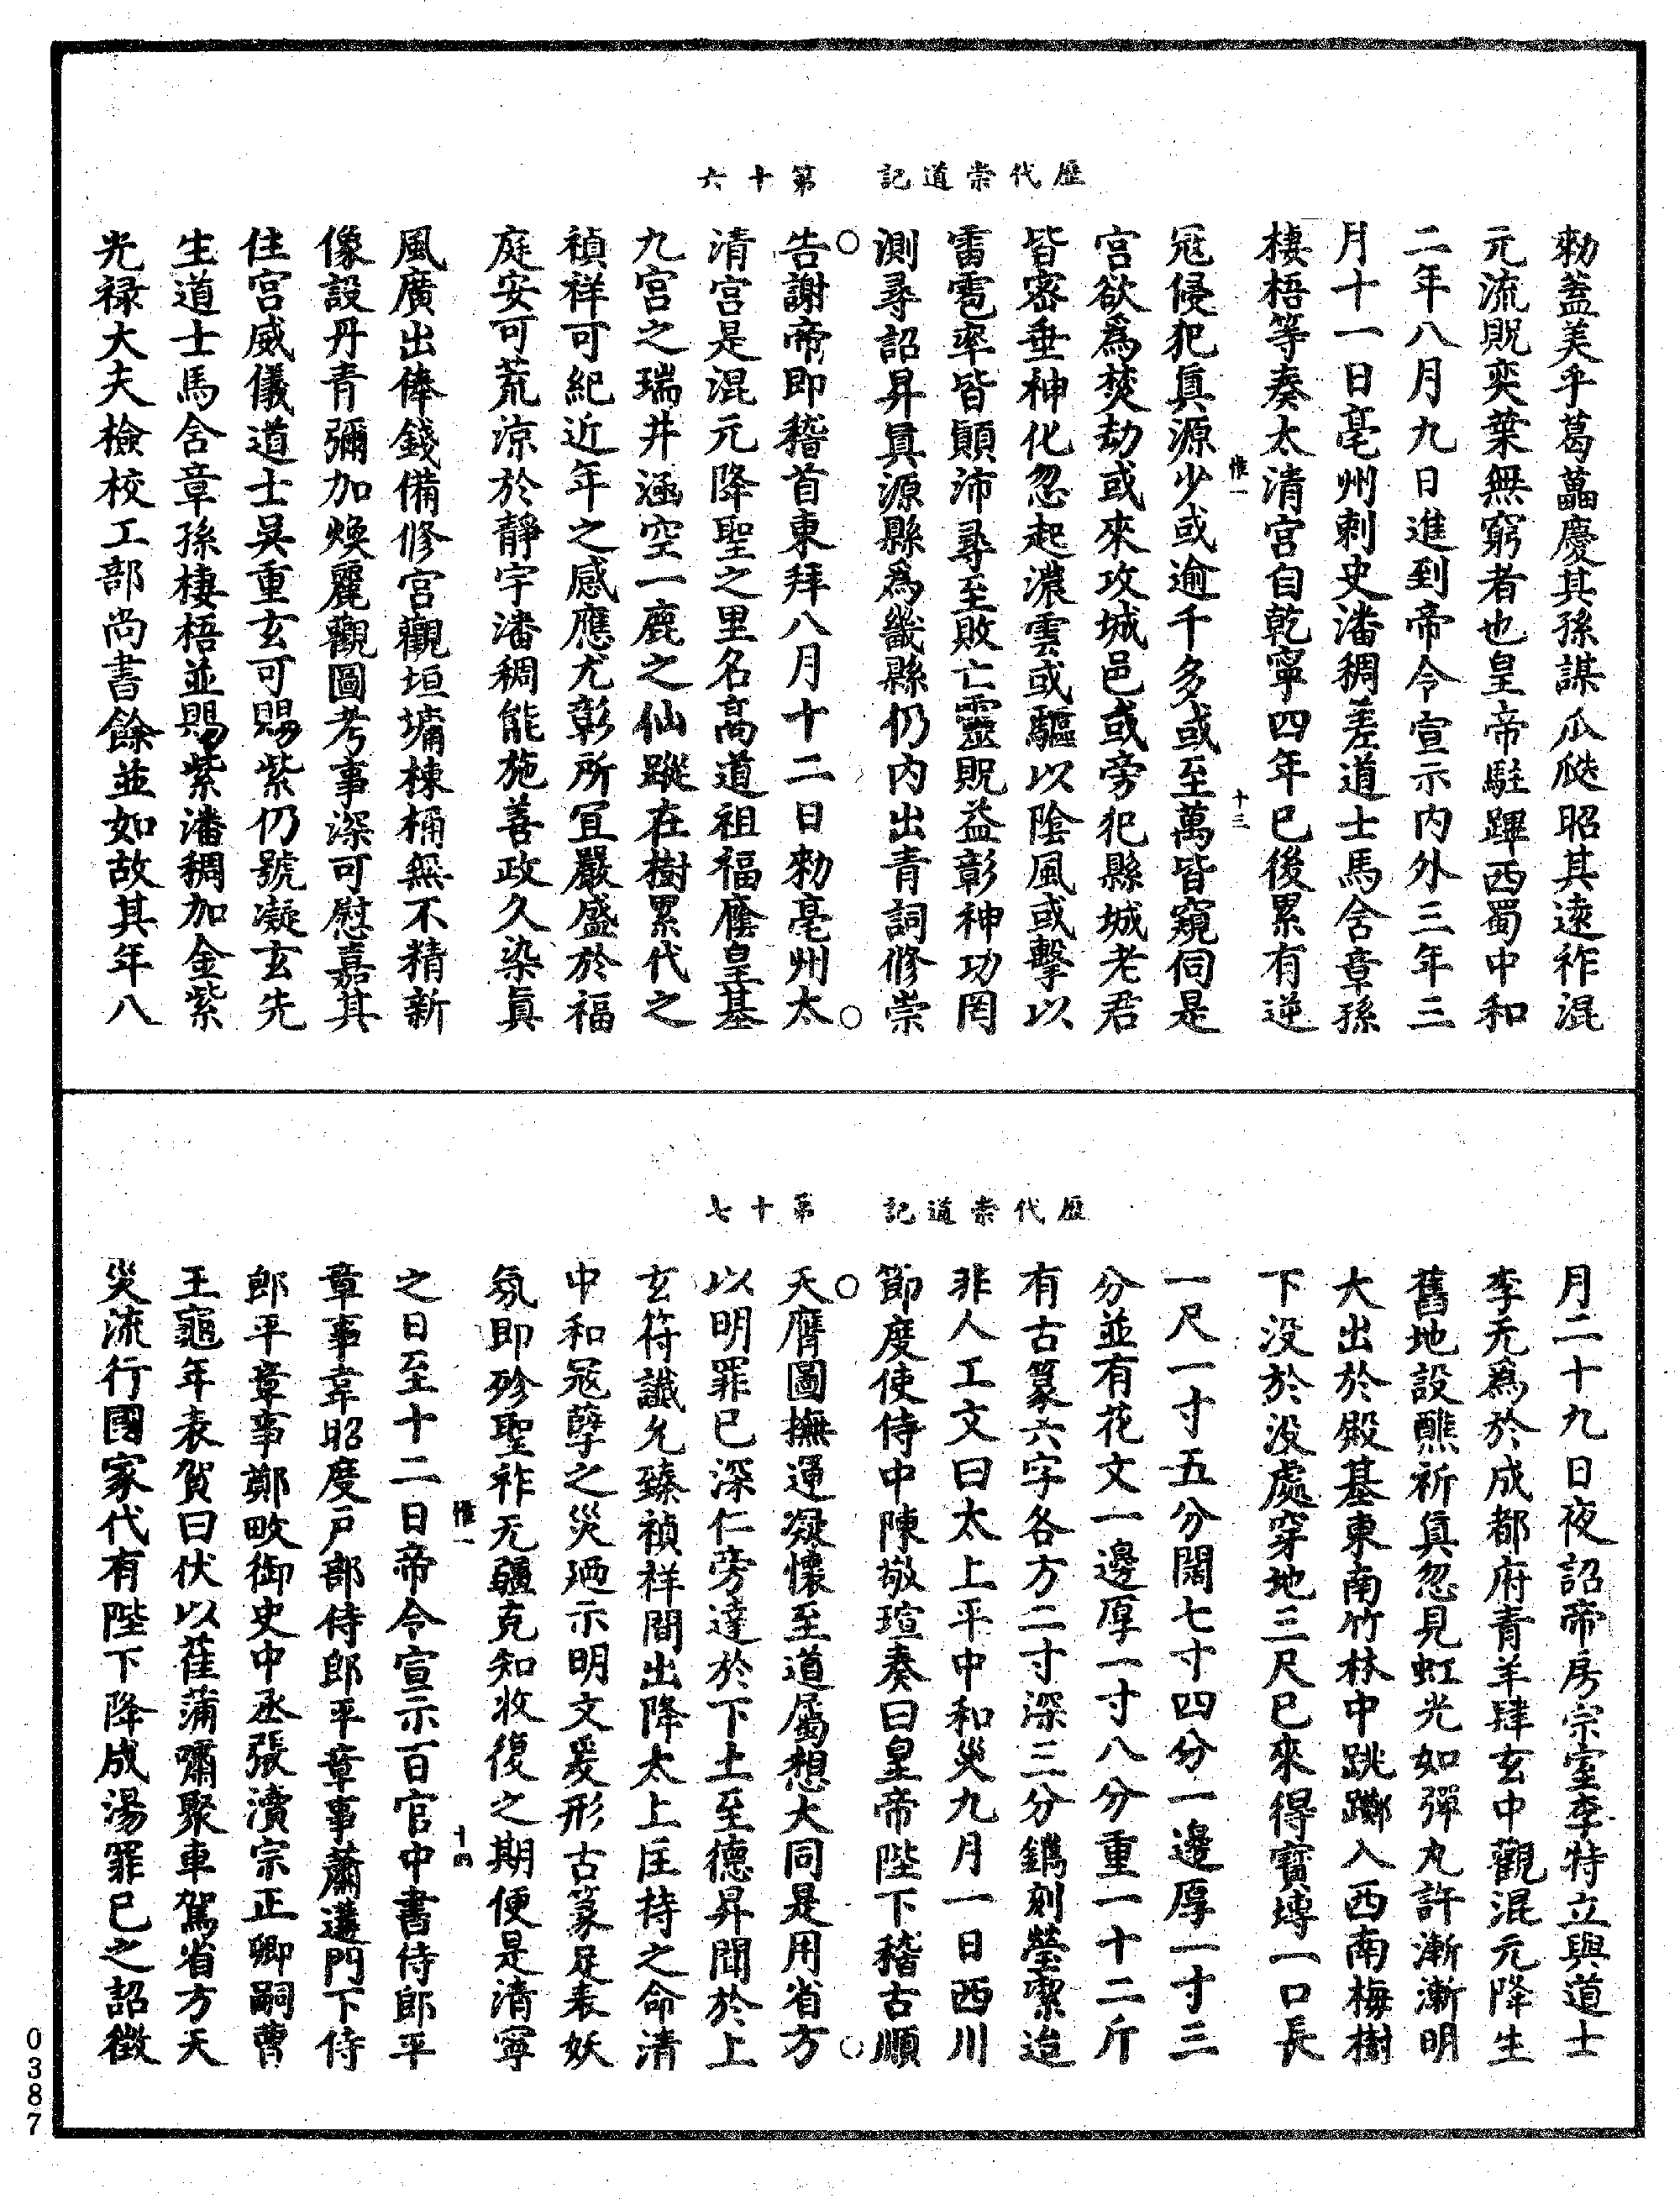 歷代崇道記　第十六
勑蓋美乎葛藟慶其孫謀瓜瓞昭其遠祚混
元流貺奕葉無窮者也皇帝駐蹕西蜀中和
二年八月九日進到帝令宣示內外三年三
月十一日亳州刺史潘稠差道士馬含章孫
棲梧等奏太清宫自乾寧四年已後累有逆
惟一　十三
冦侵犯眞源少或逾千多或至萬皆窺伺是
宫欲爲焚劫或來攻城邑或旁犯縣城老君
皆密垂神化忽起濃雲或驅以陰風或擊以
雷雹率皆顚沛尋至敗亡靈貺益彰神功罔
測尋詔昇眞源縣爲畿縣仍内出青詞修崇
告謝帝即稽首東拜八月十二日勑亳州太
清宫是混元降聖之里名高道祖福廕皇基
九宫之瑞井涵空一鹿之仙蹤在樹累代之
禎祥可紀近年之感應尤彰所冝嚴盛於福
庭安可荒凉於靜宇潘稠能施善政久染眞
風廣出俸錢備修宫觀垣墉棟桷無不精新
像設丹青彌加煥麗觀圖考事深可慰嘉其
住宫威儀道士吳重玄可賜紫仍號凝玄先
生道士馬含章孫棲梧並賜紫潘稠加金紫
光禄大夫檢校工部尚書餘並如故其年八
歷代崇道記　第十七
月二十九日夜詔帝房宗室李特立與道士
李无爲於成都府青羊肆玄中觀混元降生
舊地設醮祈眞忽見虹光如彈丸許漸漸明
大出於殿基東南竹林中跳躑入西南梅樹
下没於没處穿地三尺已來得寶塼一口長
一尺一寸五分闊七寸四分一邊厚一寸三
分並有花文一邊厚一寸八分重一十二斤
有古篆六字各方二寸深三分鐫刻瑩潔迨
非人工文曰太上平中和災九月一日西川
節度使侍中陳敬瑄奏曰皇帝陛下稽古順
天膺圖撫運凝懷至道屬想大同是用省方
以明罪已深仁旁達於下土至德昇聞於上
玄符讖允臻禎祥間出降太上匡持之命清
中和冦孽之災廼示明文爰形古篆足表妖
氛即殄聖祚无疆克知收復之期便是清寧
惟一　十四
之日至十二日帝令宣示百官中書侍郎平
章事韋昭度戶部侍郎平章事蕭遘門下侍
郎平章事鄭畋御史中丞張濆宗正卿嗣曹
王龜年表賀曰伏以萑蒲嘯聚車駕省方天
災流行國家代有陛下降成湯罪已之詔徵
0387